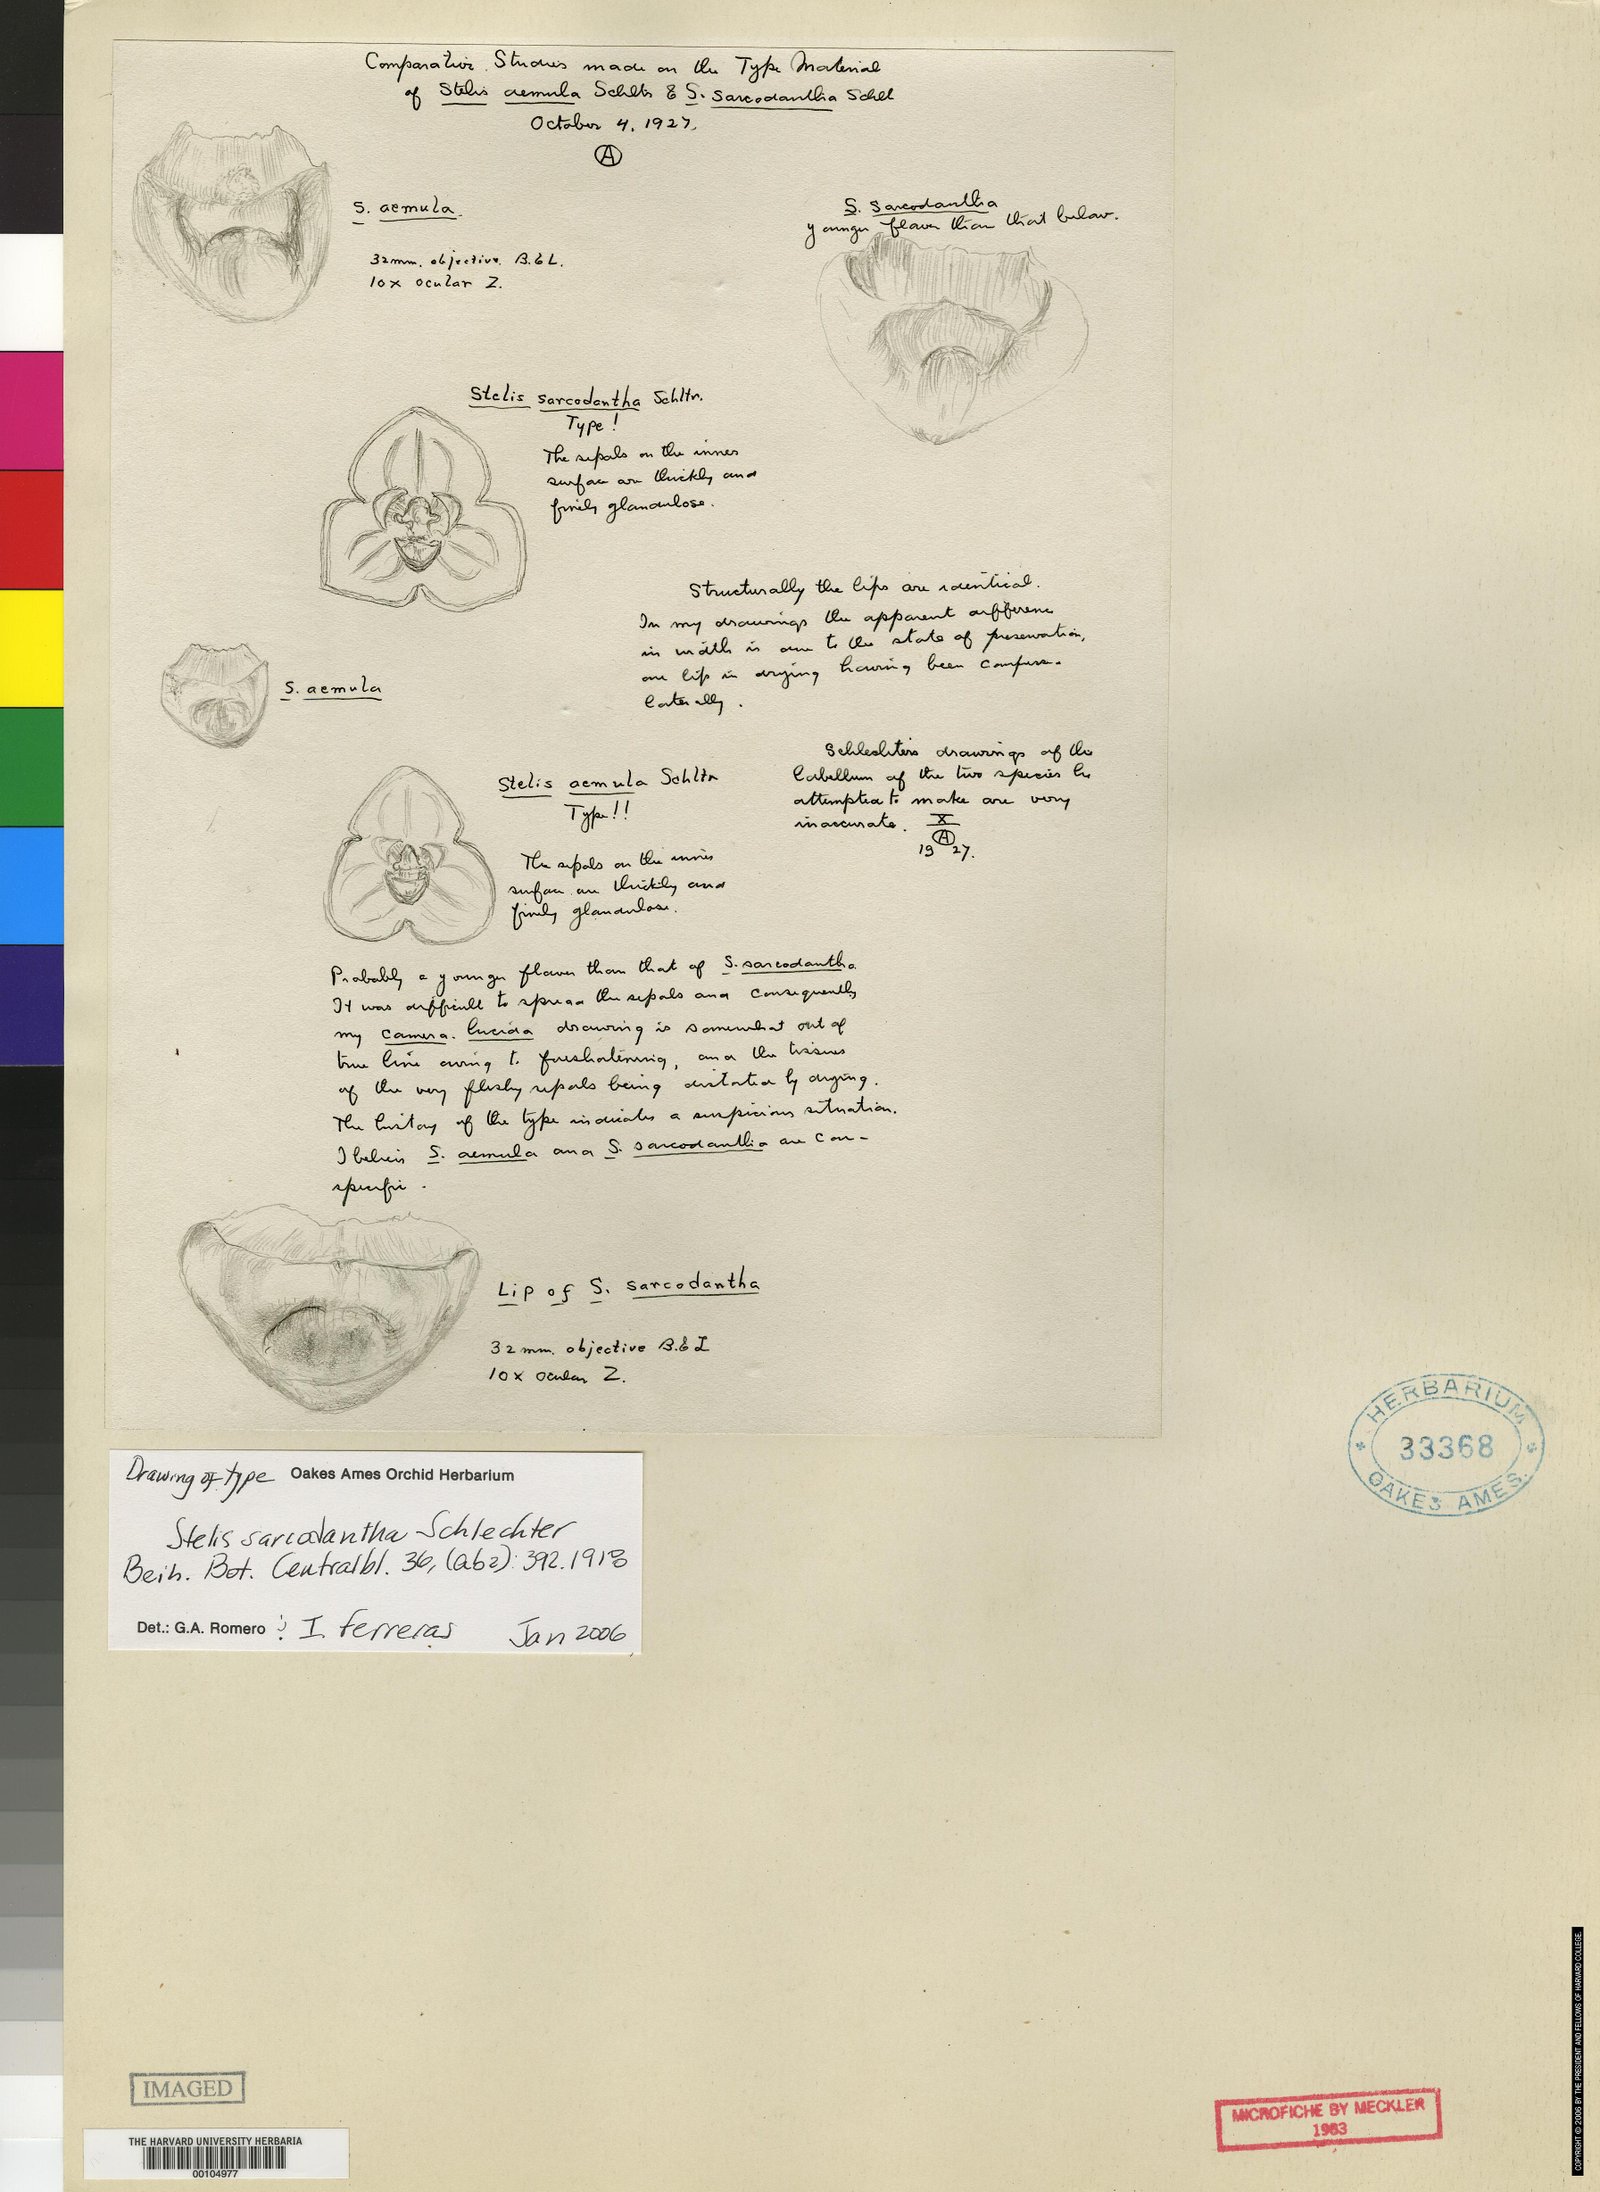 Comparative Studies made on the Type Material
of Stelis aemula Schltr & S. sarcodantha Schlt
October 4, 1927.
A
S. aemula.
32mm. objective. B. & L.
10x ocular Z.
S. sarcodantha
younger flower than that below.
Stelis sarcodantha Schltr.
Type!
The sepals on the inner
surface are thickly and
finely glandulose.
Structurally the lips are identical.
In my drawings the apparent difference
in width is due to the state of preservation,
one lip in drying having been compress-
laterally.
S. aemula
Schlechter's drawings of the
labellum of the two species he
attempted to make are very
inaccurate. X
A
19 27.
Stelis aemula Schltr
Type!!
The sepals on the inner
surface are thickly and
finely glandulose.
Probably a younger flower than that of S. sarcodantha
It was difficult to spread the sepals and consequently
my camera lucida drawing is somewhat out of
true line owing to foreshortening, and the tissues
of the very fleshy sepals being distorted by drying.
The history of the type indicates a suspicious situation.
I believe S. aemula and S. sarcodantha are con-
specific.
Lip of S. sarcodantha
32 mm. objective B. & L
10x ocular Z.
HERBARIUM
33368
OAKES AMES.
Drawing of type Oakes Ames Orchid Herbarium
Stelis sarcodantha Schlechter
Beih. Bot. Centralbl. 36, (Ab2): 392. 1918
Det.: G.A. Romero & I. Ferreras Jan 2006
IMAGED
THE HARVARD UNIVERSITY HERBARIA
00104977
MICROFICHE BY MECKLER
1983
COPYRIGHT © 2006 BY THE PRESIDENT AND FELLOWS OF HARVARD COLLEGE.